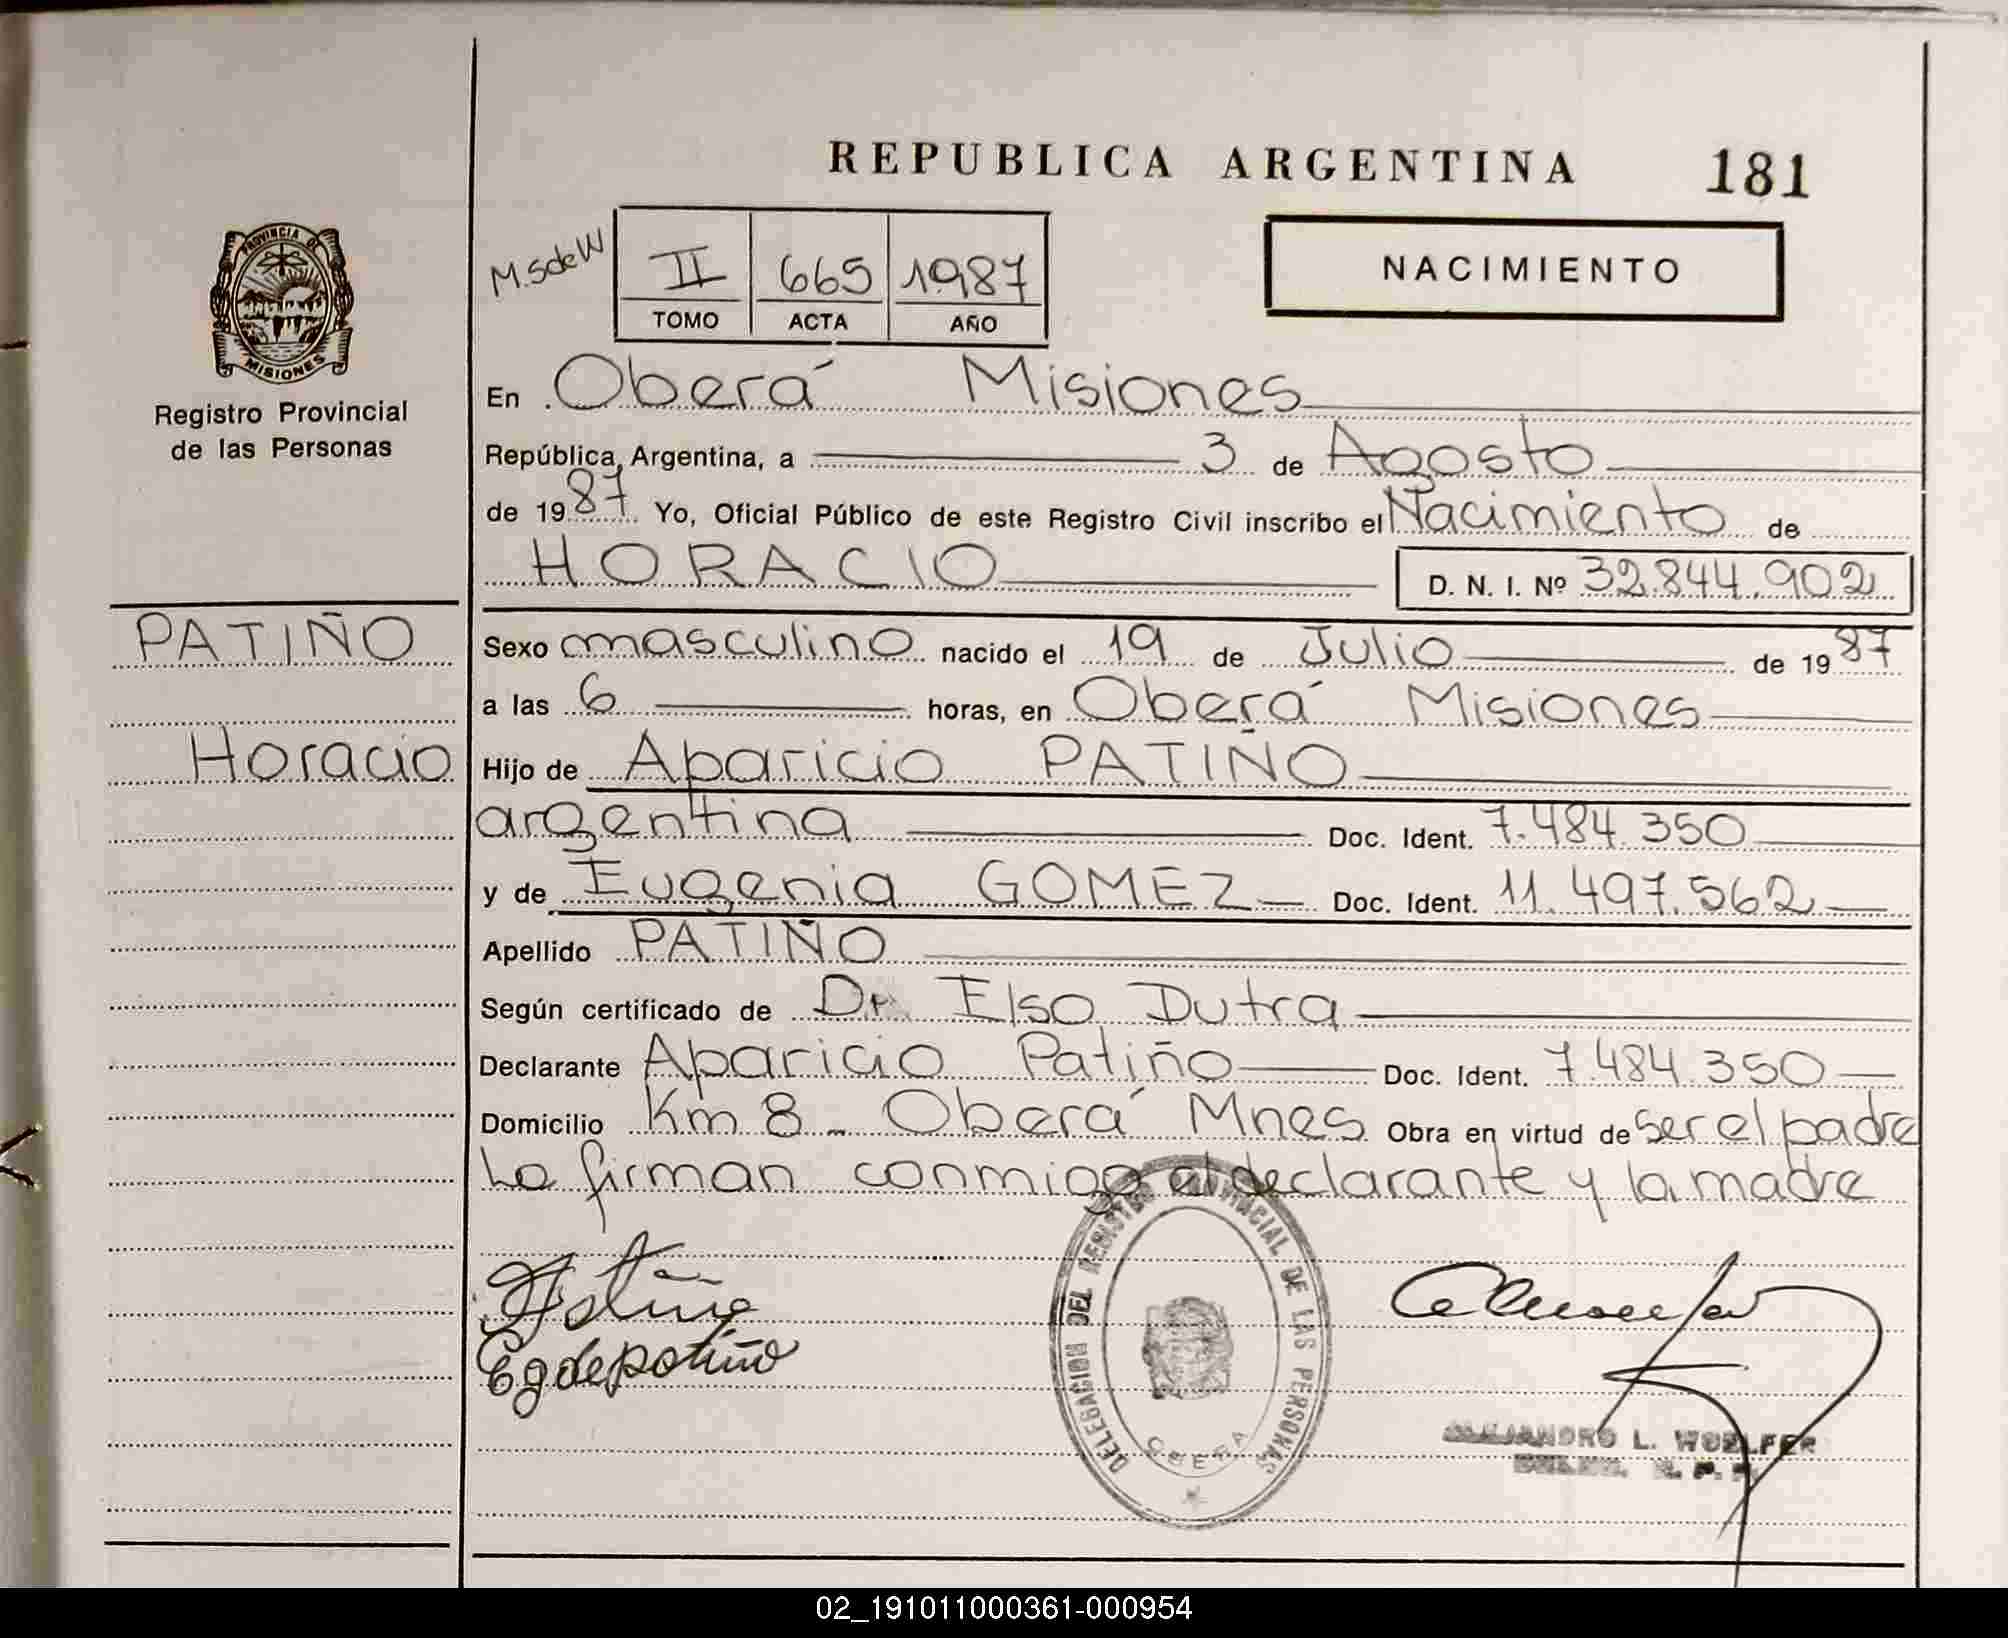 REPUBLICA ARGENTINA 181
PROVINCIA DE
MISIONES
Registro Provincial
de las Personas
M.SdeW
II 665 1987
TOMO ACTA AÑO
NACIMIENTO
En Oberá Misiones
República Argentina, a 3 de Agosto
de 1987 Yo, Oficial Público de este Registro Civil inscribo el Nacimiento de
HORACIO D. N. I. Nº 32.844.902
PATIÑO
Horacio
Sexo masculino nacido el 19 de Julio de 1987
a las 6 horas, en Oberá Misiones
Hijo de Aparicio PATIÑO
argentina Doc. Ident. 7.484.350
y de Eugenia GOMEZ Doc. Ident. 11.497.562
Apellido PATIÑO
Según certificado de Dr. Elso Dutra
Declarante Aparicio Patiño Doc. Ident. 7.484.350
Domicilio Km 8 - Oberá Mnes Obra en virtud de ser el padre
La firman conmigo el declarante y la madre
Egdepatiño
DELEGACION DEL REGISTRO PROVINCIAL DE LAS PERSONAS
OBERA
ALEJANDRO L. WOELFER
02_191011000361-000954